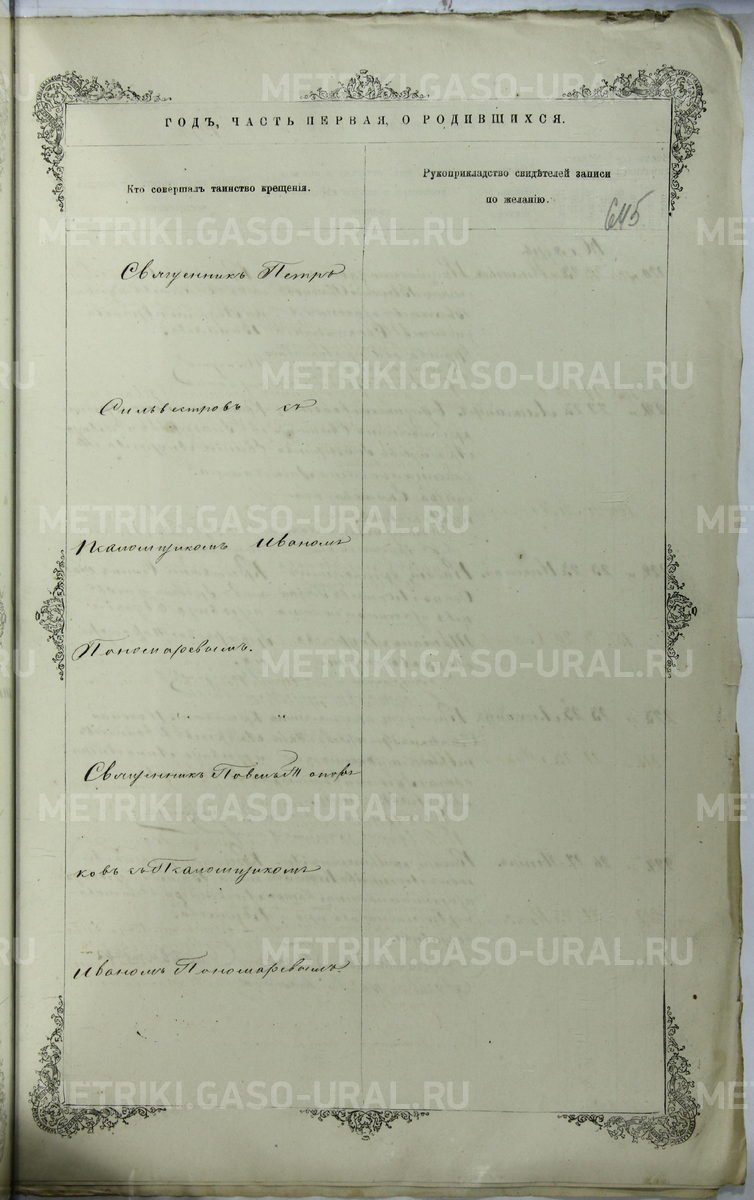 ГОДЪ, ЧАСТЬ ПЕРВАЯ, О РОДИВШИХСЯ.
Кто совершалъ таинство крещенія.
Рукоприкладство свидѣтелей записи
по желанію.
645
Священникъ Петръ
Сильвестровъ съ
Псаломщикомъ Иваномъ
Пономаревымъ.
Священникъ Павелъ Топор
ковъ съ Псаломщикомъ
Иваномъ Пономаревымъ.
METRIKI.GASO-URAL.RU